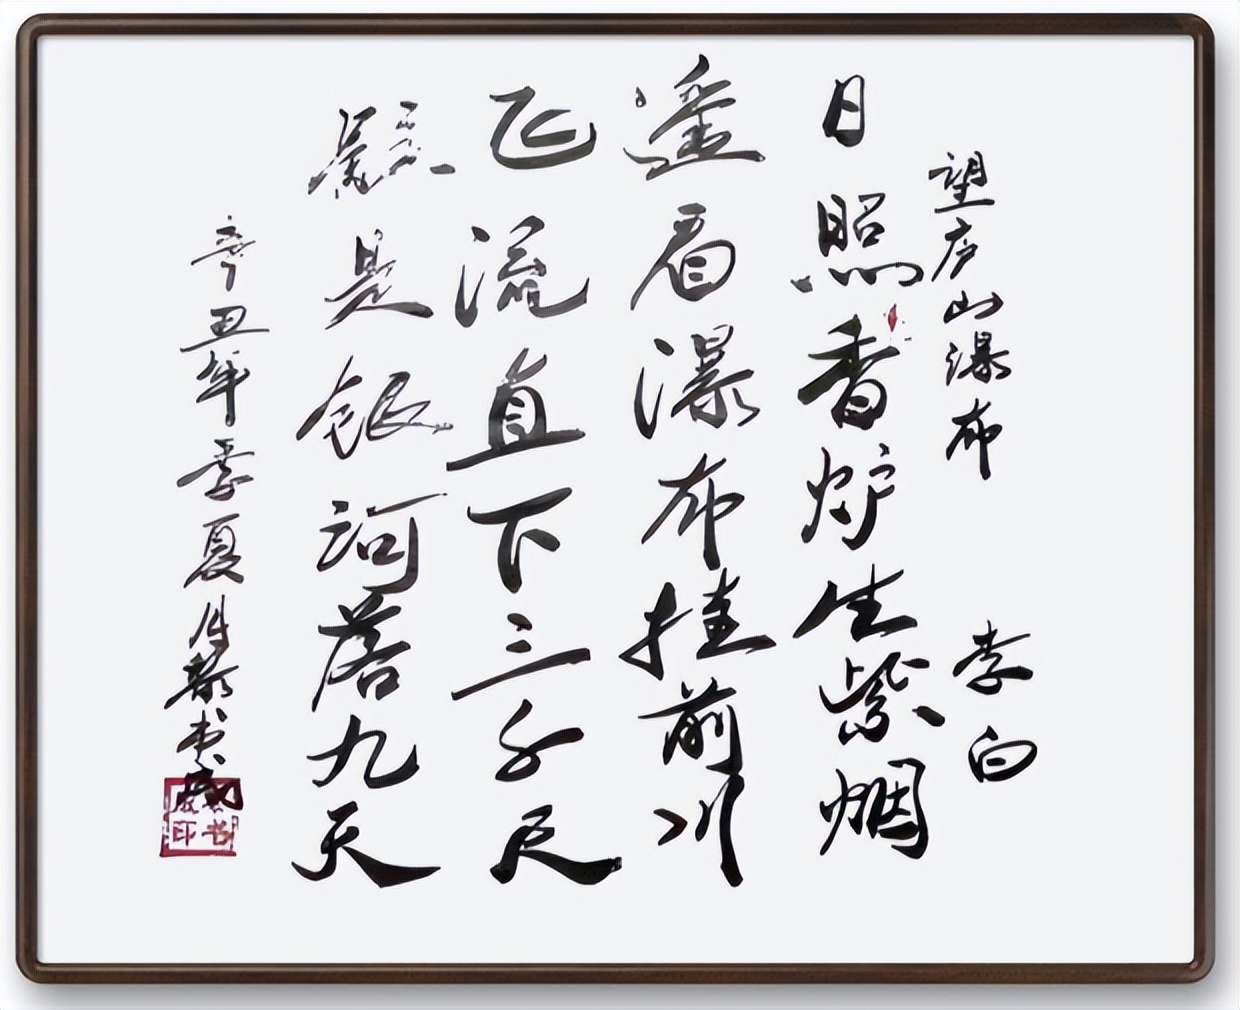 望庐山瀑布 李白
日照香炉生紫烟
遥看瀑布挂前川
飞流直下三千尺
疑是银河落九天
辛丑年季夏月书